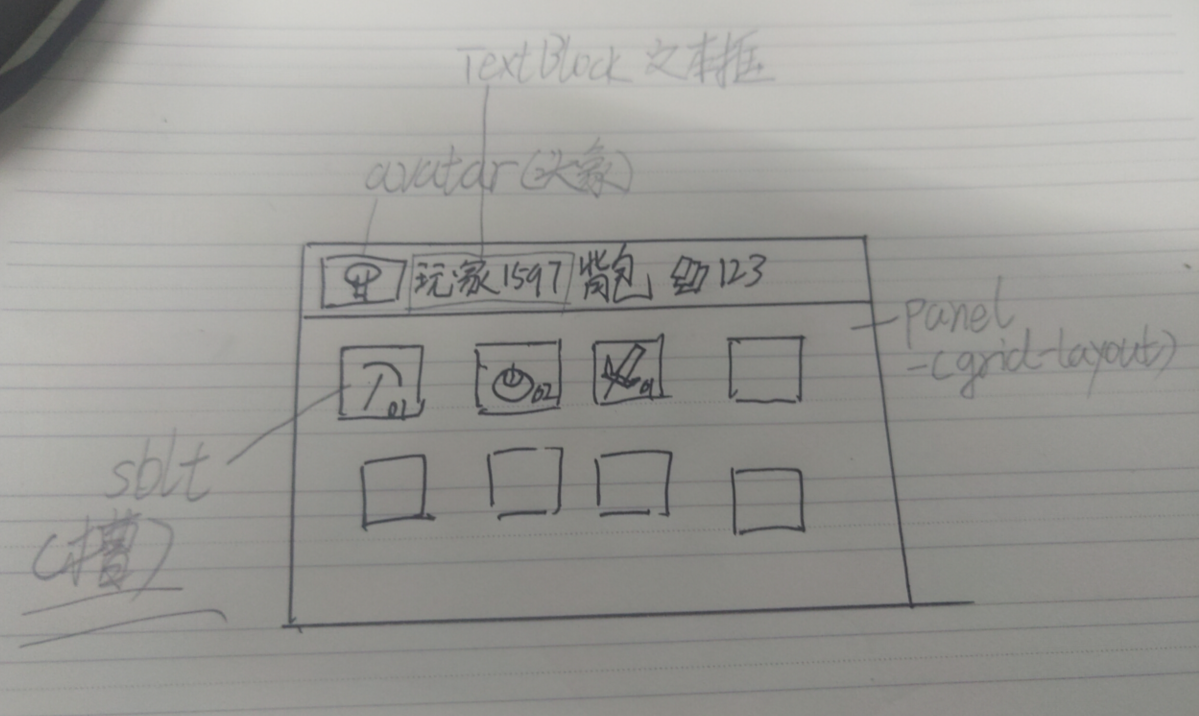 TextBlock 文本框
avatar(头象)
玩家1597 背包 123
panel
-(grid-layout)
01 02 01
sblt
(槽)